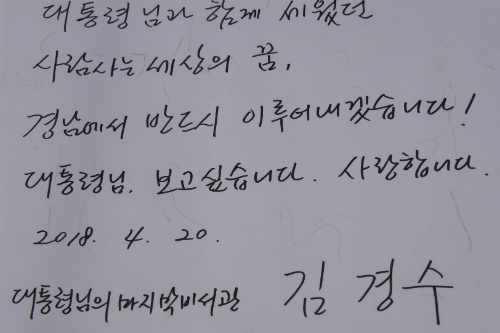 대통령님과 함께 세웠던
사람사는세상의 꿈,
경남에서 반드시 이루어내겠습니다!
대통령님. 보고싶습니다. 사랑합니다.
2018. 4. 20.
대통령님의 마지막비서관 김 경 수